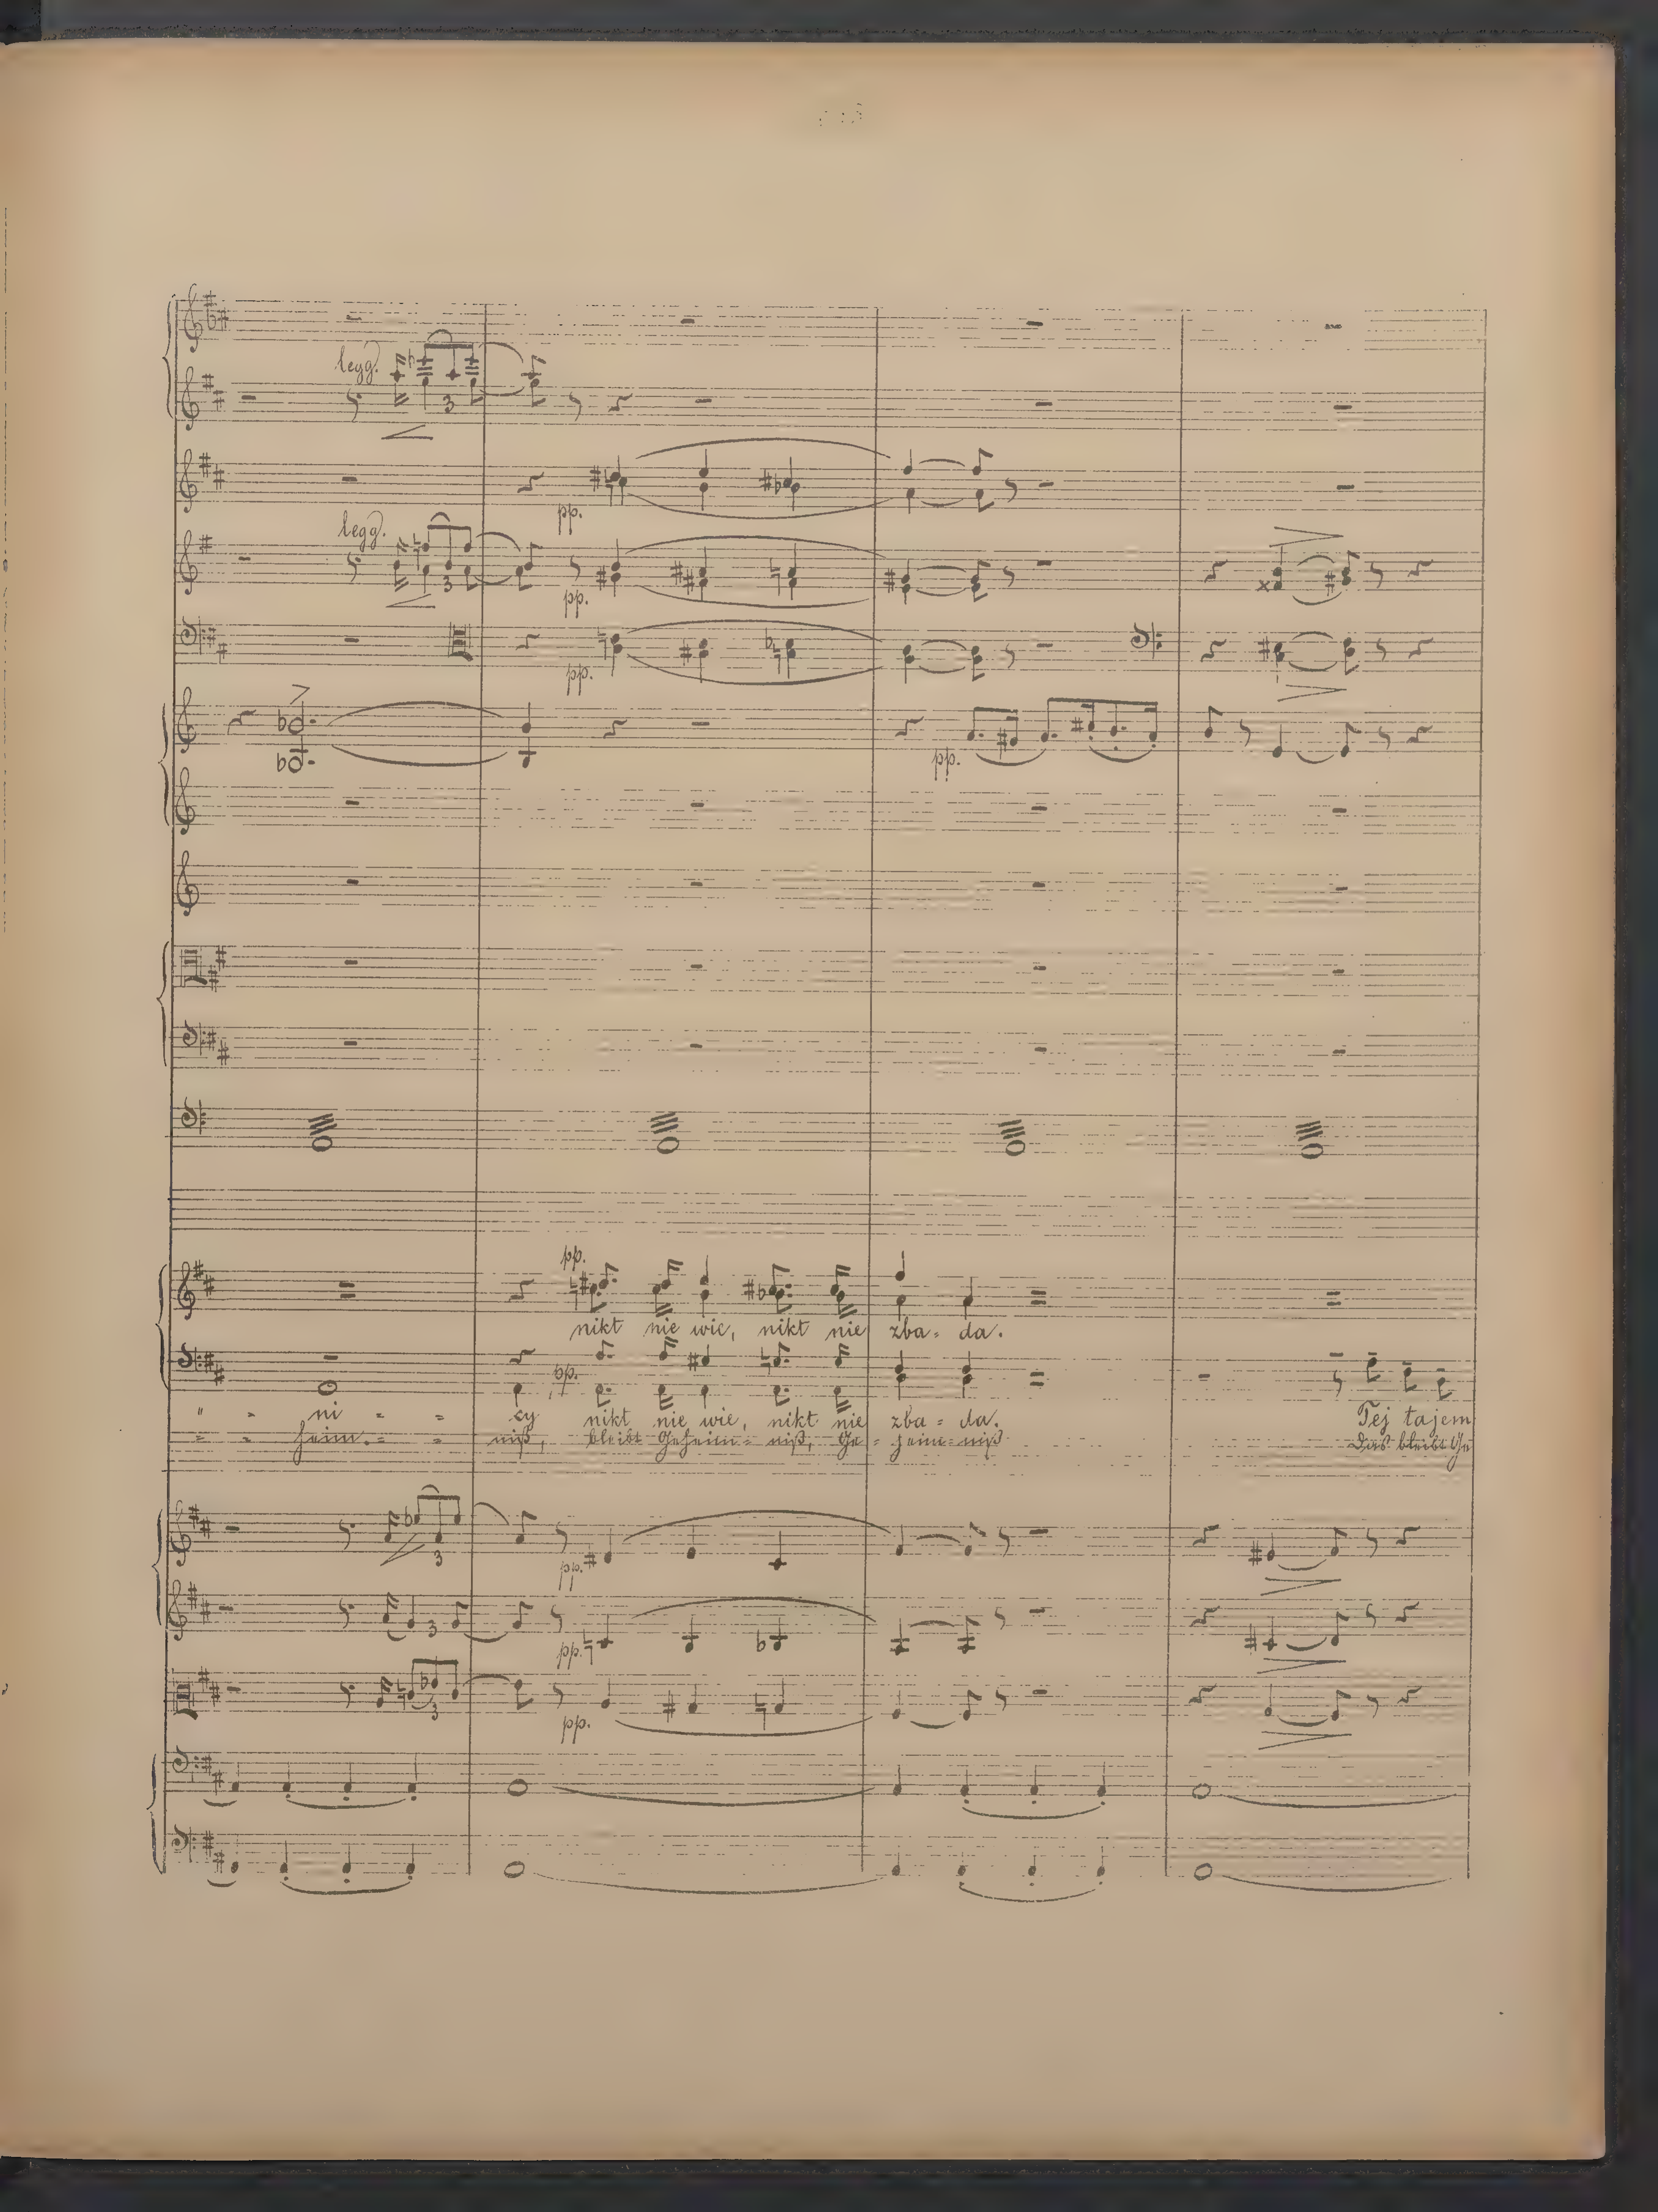 legg.
3
pp.
legg.
3
pp.
pp.
pp.
pp.
nikt nie wie, nikt nie zba - da.
pp.
" - ni - - cy nikt nie wie, nikt nie zba - da. Tej tajem
- - heim. - - niß, bleibt Geheim - niß, Ge - heim - niß Das bleibt Ge
3
pp.
3
pp.
3
pp.